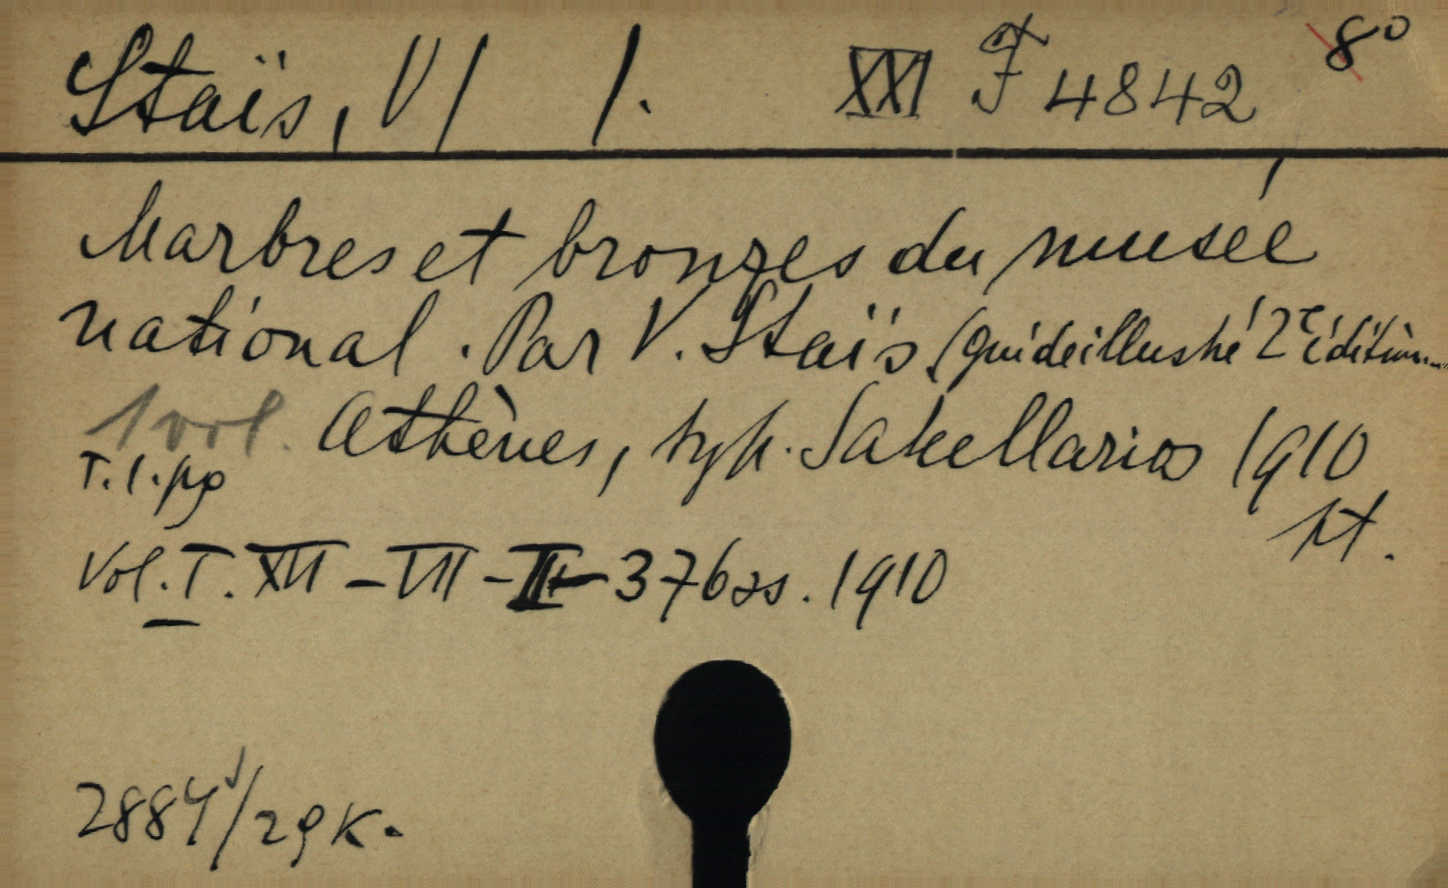 Staïs, V/ /. XXI F 4842 8°
Marbres et bronzes du musée
national. Par V. Staïs (guide illustré 2e édition...
1 vol. Athènes, typ. Sakellarios 1910
T.1.pg
kt.
Vol. I. XII - VII - II - 376 as. 1910
2884/29 K.